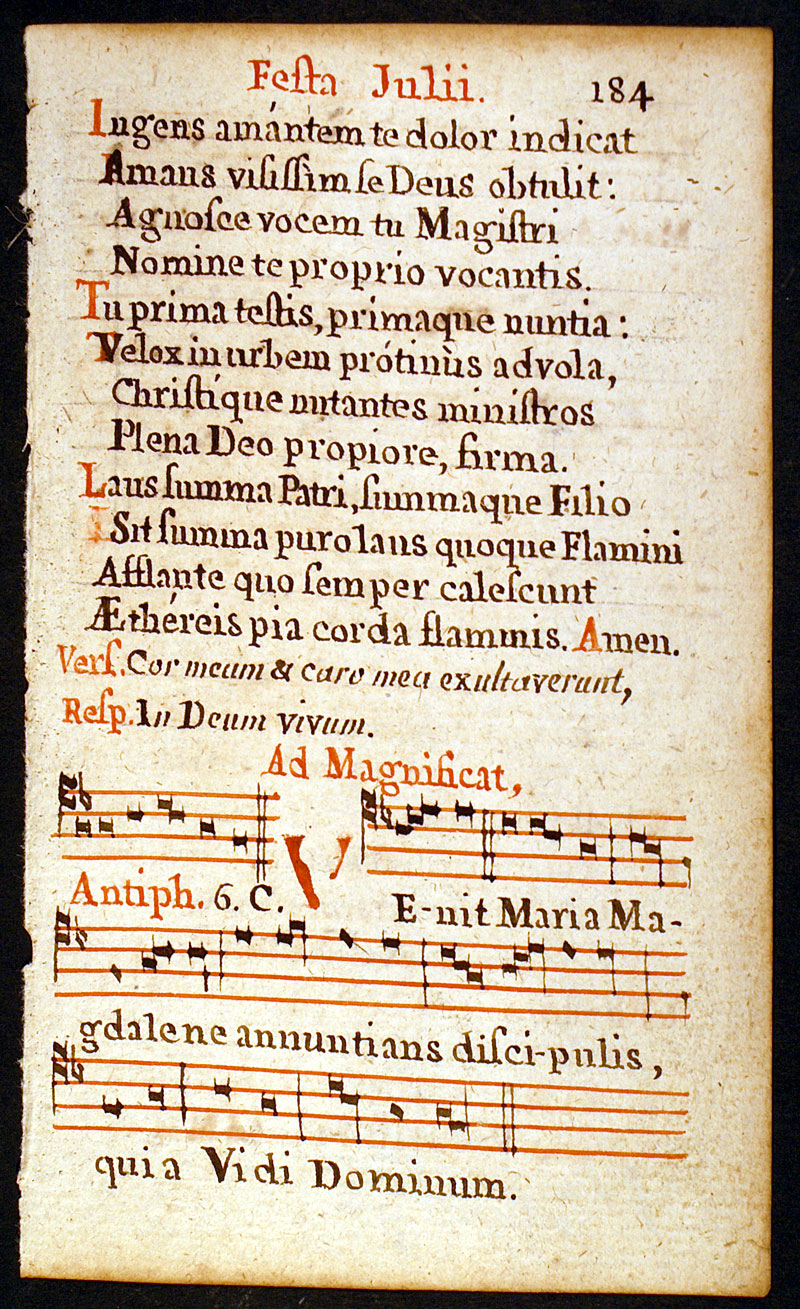 Festa Julii. 184
Ingens amántem te dolor indicat
Amans visissim se Deus obtulit:
Agnosce vocem tu Magistri
Nomine te proprio vocantis.
Tu prima testis, primaque nuntia:
Velox in urbem prótinùs advola,
Christíque nutantes ministros
Plena Deo propiore, firma.
Laus summa Patri, summaque Filio
Sit summa puro laus quoque Flamini
Afflante quo semper calescunt
Æthéreis pia corda flammis. Amen.
Vers. Cor meum & caro mea exultaverunt,
Resp. In Deum vivum.
Ad Magnificat,
Antiph. 6. C. VE-nit Maria Ma-
gdalene annuntians disci-pulis,
quia Vidi Dominum.